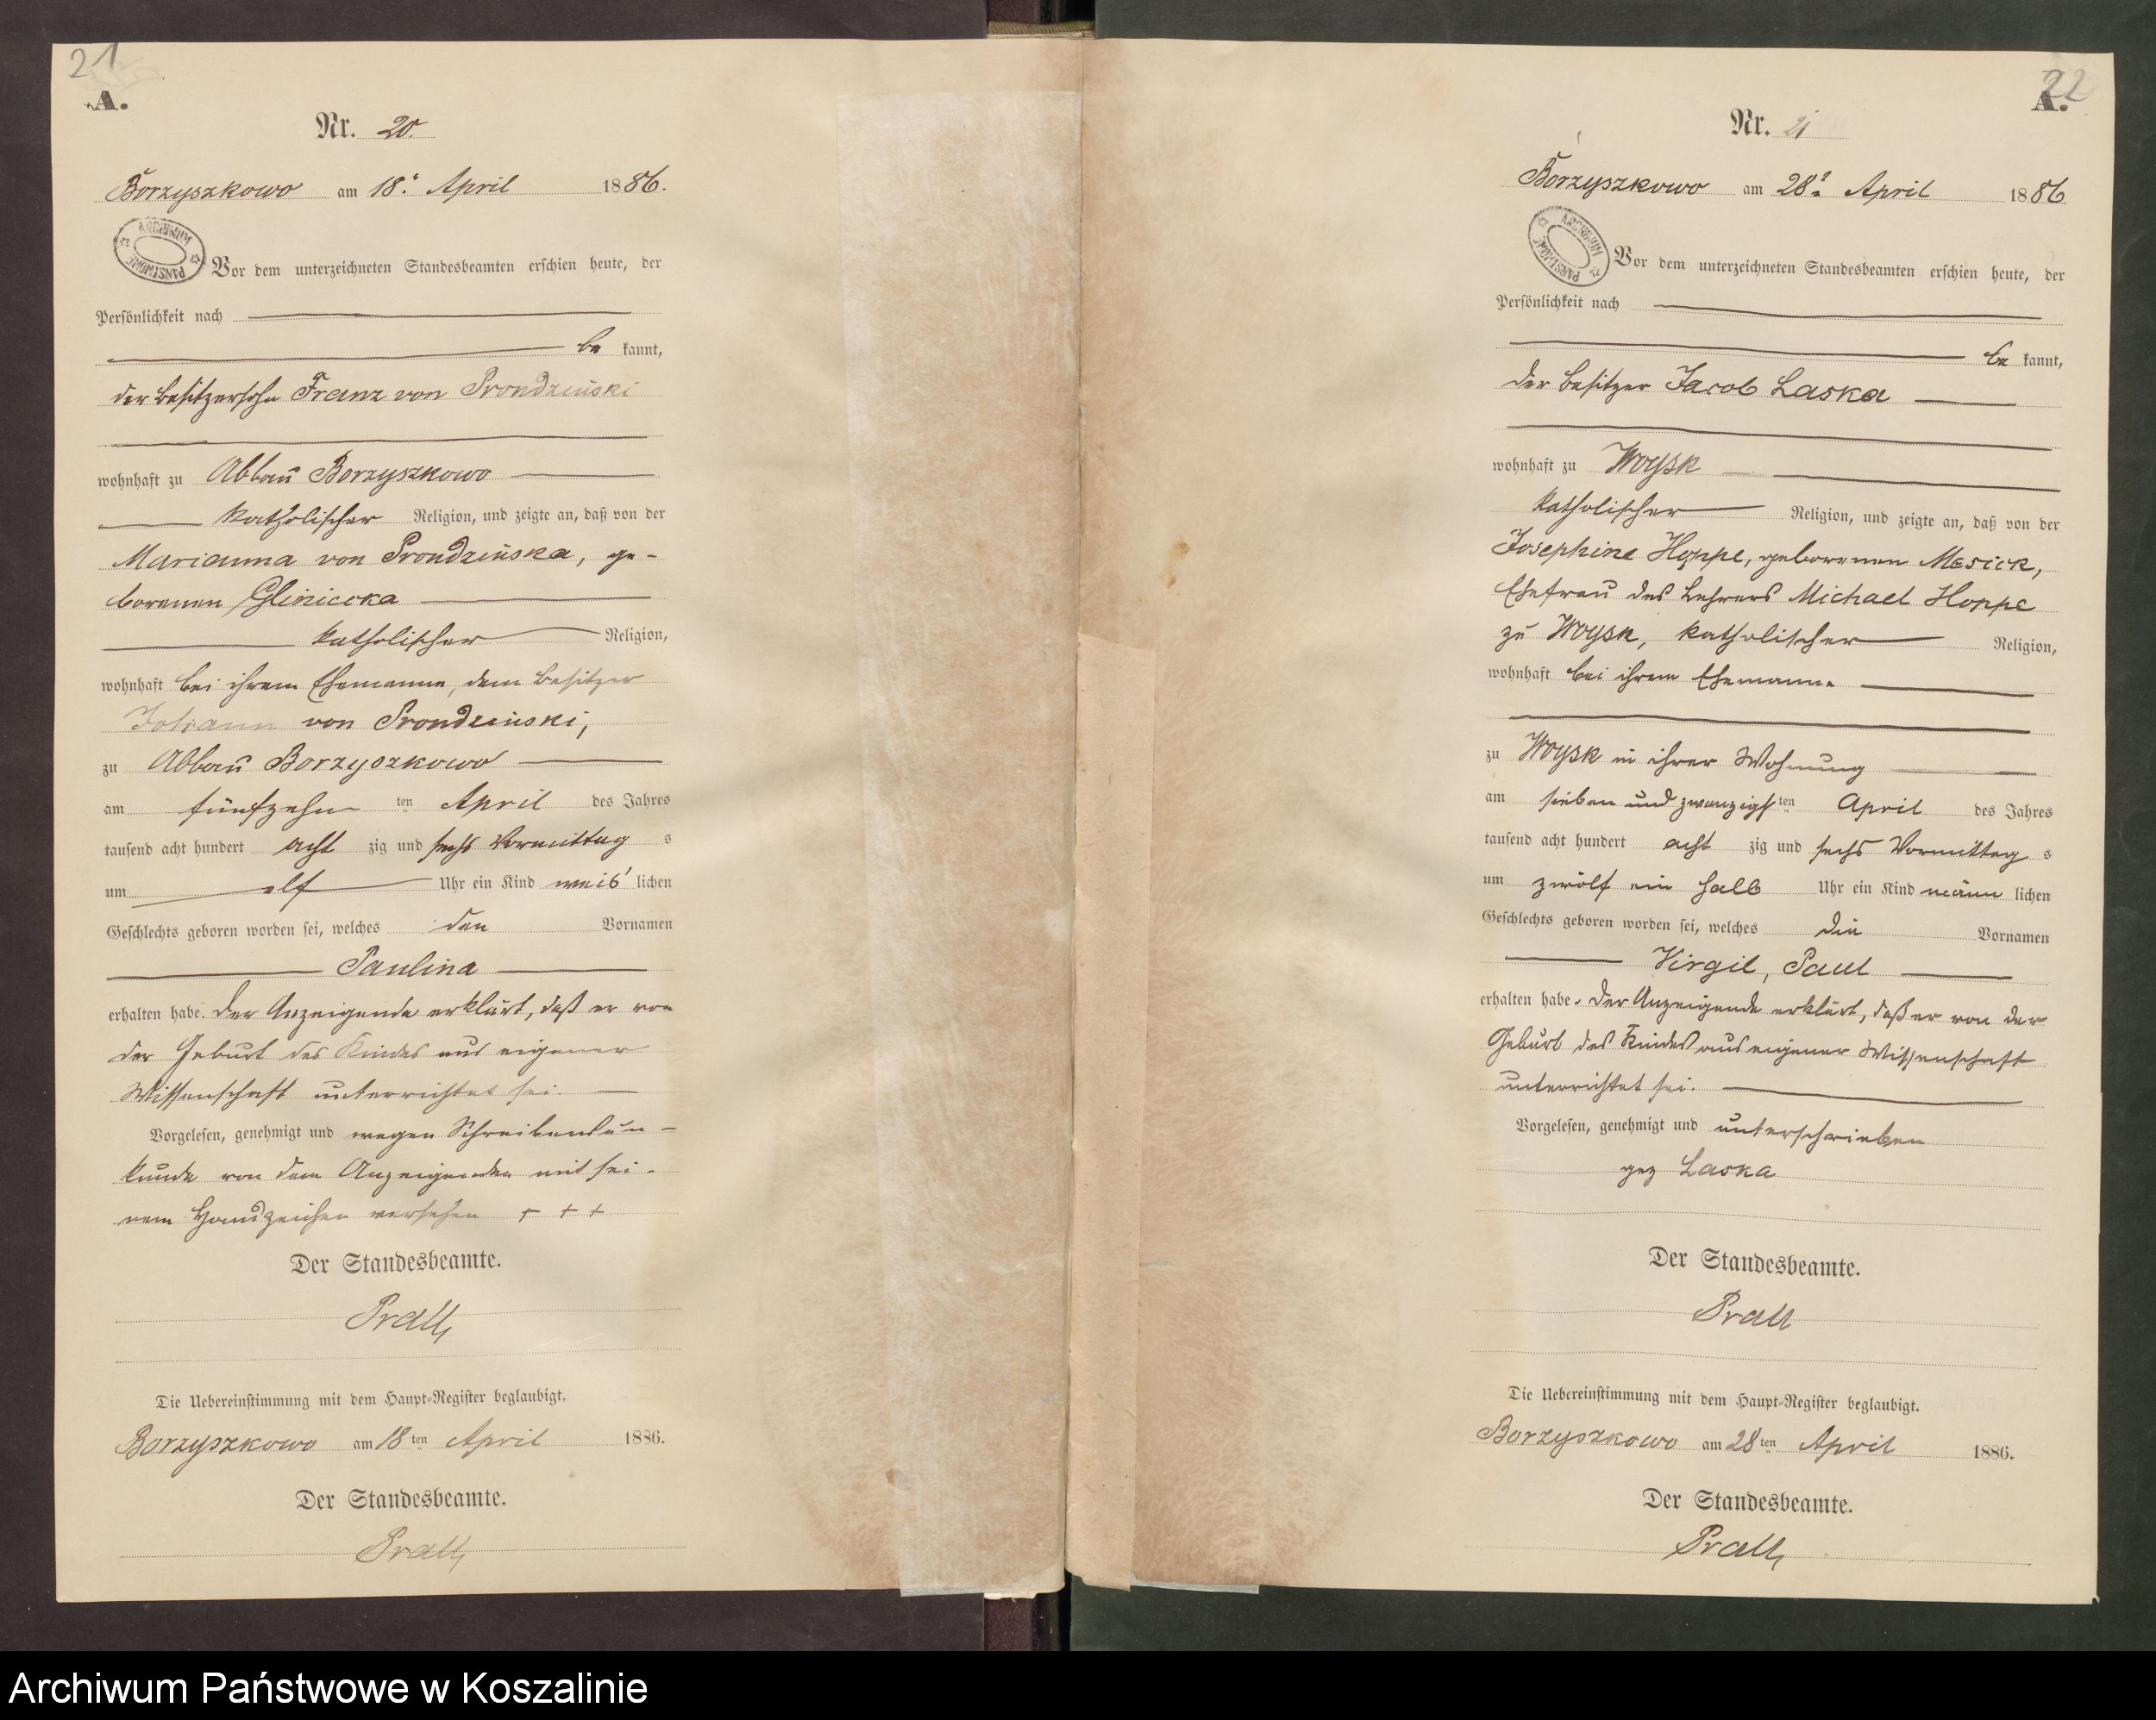 21
A.
Nr. 20.
Borzyszkowo am 18. April 1886.
ARCHIWUM PAŃSTWOWE
Vor dem unterzeichneten Standesbeamten erschien heute, der
Persönlichkeit nach
be kannt,
der Besitzersohn Franz von Prondzinski
wohnhaft zu Abbau Borzyszkowo
katholischer Religion, und zeigte an, daß von der
Marianna von Prondzinska, ge-
borenen Gliniecka
katholischer Religion,
wohnhaft bei ihrem Ehemanne, dem Besitzer
Johann von Prondzinski,
zu Abbau Borzyszkowo
am fünfzehn ten April des Jahres
tausend acht hundert acht zig und sechs Vormittag s
um elf Uhr ein Kind weib lichen
Geschlechts geboren worden sei, welches den Vornamen
Paulina
erhalten habe. Der Anzeigende erklärt, daß er von
der Geburt des Kindes aus eigener
Wissenschaft unterrichtet sei.
Vorgelesen, genehmigt und wegen Schreibensun-
kunde von dem Anzeigenden mit sei-
nem Handzeichen versehen + + +
Der Standesbeamte.
Prall
Die Uebereinstimmung mit dem Haupt-Register beglaubigt.
Borzyszkowo am 18 ten April 1886.
Der Standesbeamte.
Prall
22
A.
Nr. 21
Borzyszkowo am 28. April 1886
ARCHIWUM PAŃSTWOWE
Vor dem unterzeichneten Standesbeamten erschien heute, der
Persönlichkeit nach
be kannt,
der Besitzer Jacob Laska
wohnhaft zu Woysk
katholischer Religion, und zeigte an, daß von der
Josephine Hoppe, geborenen Mesick,
Ehefrau des Lehrers Michael Hoppe
zu Woysk, katholischer Religion,
wohnhaft bei ihrem Ehemanne
zu Woysk in ihrer Wohnung
am sieben und zwanzigs ten April des Jahres
tausend acht hundert acht zig und sechs Vormittag s
um zwölf ein halb Uhr ein Kind männ lichen
Geschlechts geboren worden sei, welches die Vornamen
Virgil, Paul
erhalten habe. Der Anzeigende erklärt, daß er von der
Geburt des Kindes aus eigener Wissenschaft
unterrichtet sei.
Vorgelesen, genehmigt und unterschrieben
gez Laska
Der Standesbeamte.
Prall
Die Uebereinstimmung mit dem Haupt-Register beglaubigt.
Borzyszkowo am 28 ten April 1886.
Der Standesbeamte.
Prall
Archiwum Państwowe w Koszalinie